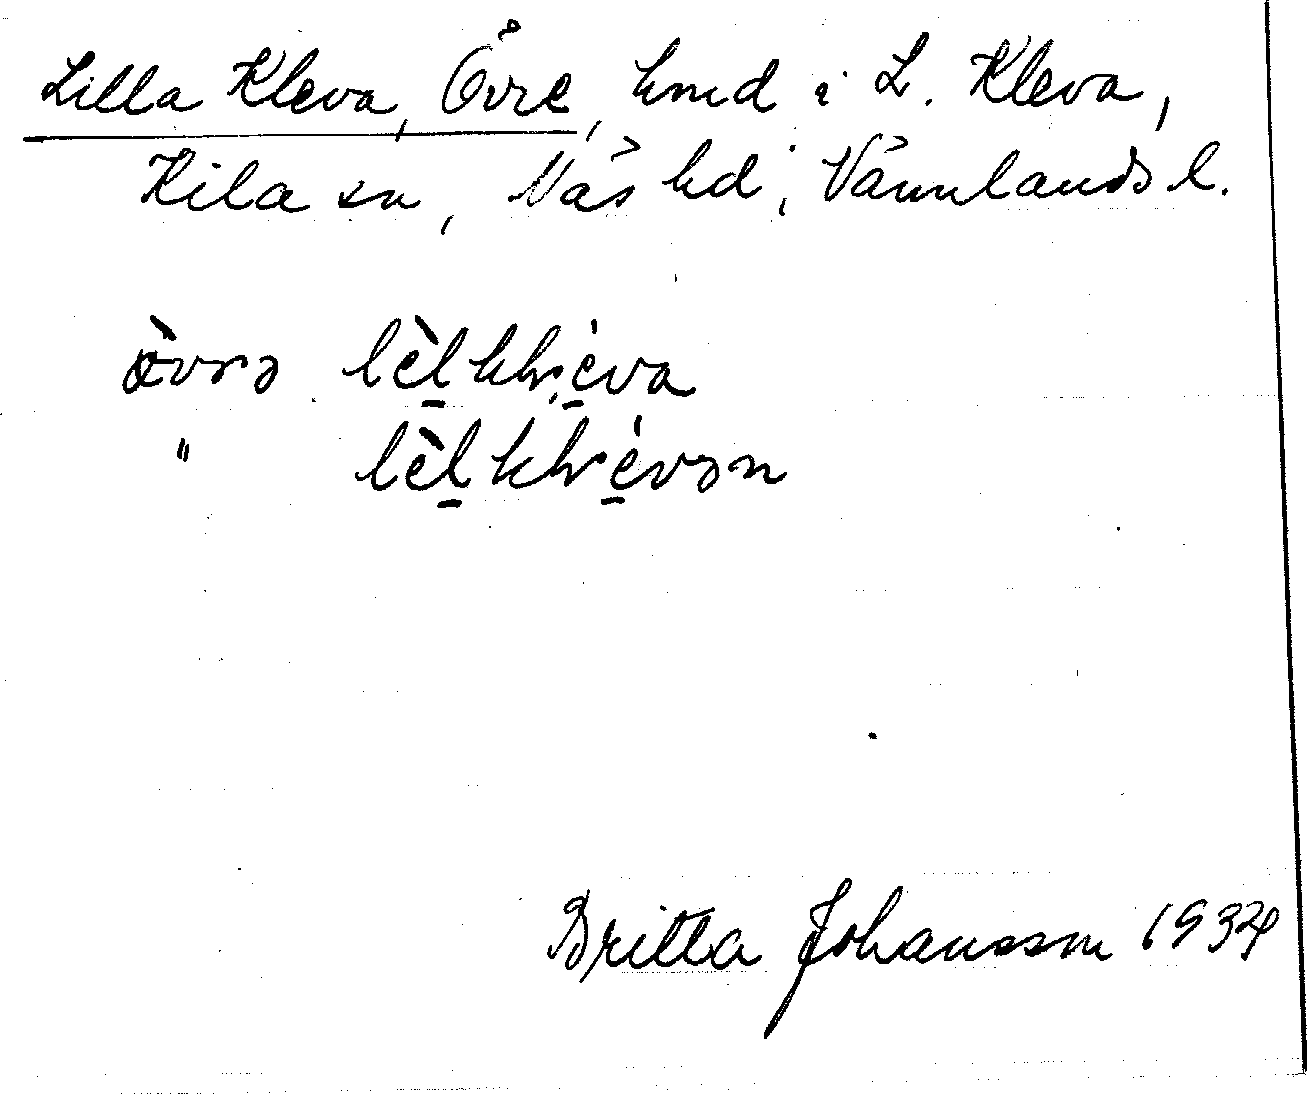 Lilla Kleva, Övre, hmd i L. Kleva,
Kila sn, Näs hd, Värmlands l.
òvrə lèl klreva
" lèl klrévən
Britta Johansson 1934